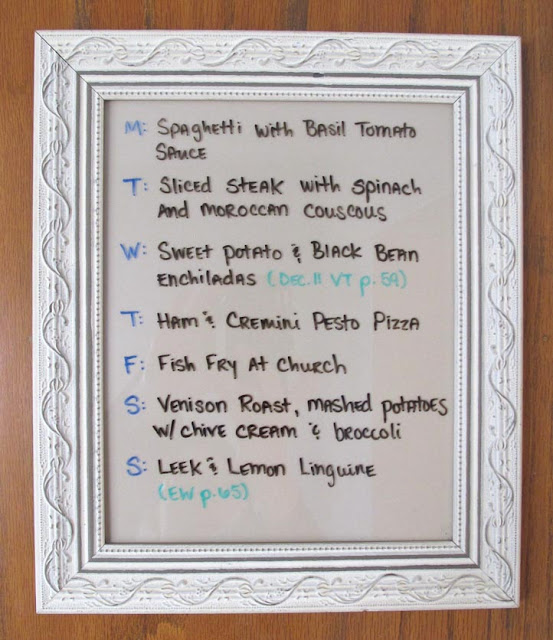 M: Spaghetti with Basil Tomato
Sauce
T: Sliced Steak with Spinach
and Moroccan Couscous
W: Sweet Potato & Black Bean
Enchiladas (Dec. 11 VT p. 59)
T: Ham & Cremini Pesto Pizza
F: Fish Fry at Church
S: Venison Roast, mashed potatoes
w/ chive cream & broccoli
S: Leek & Lemon Linguine
(EW p. 65)